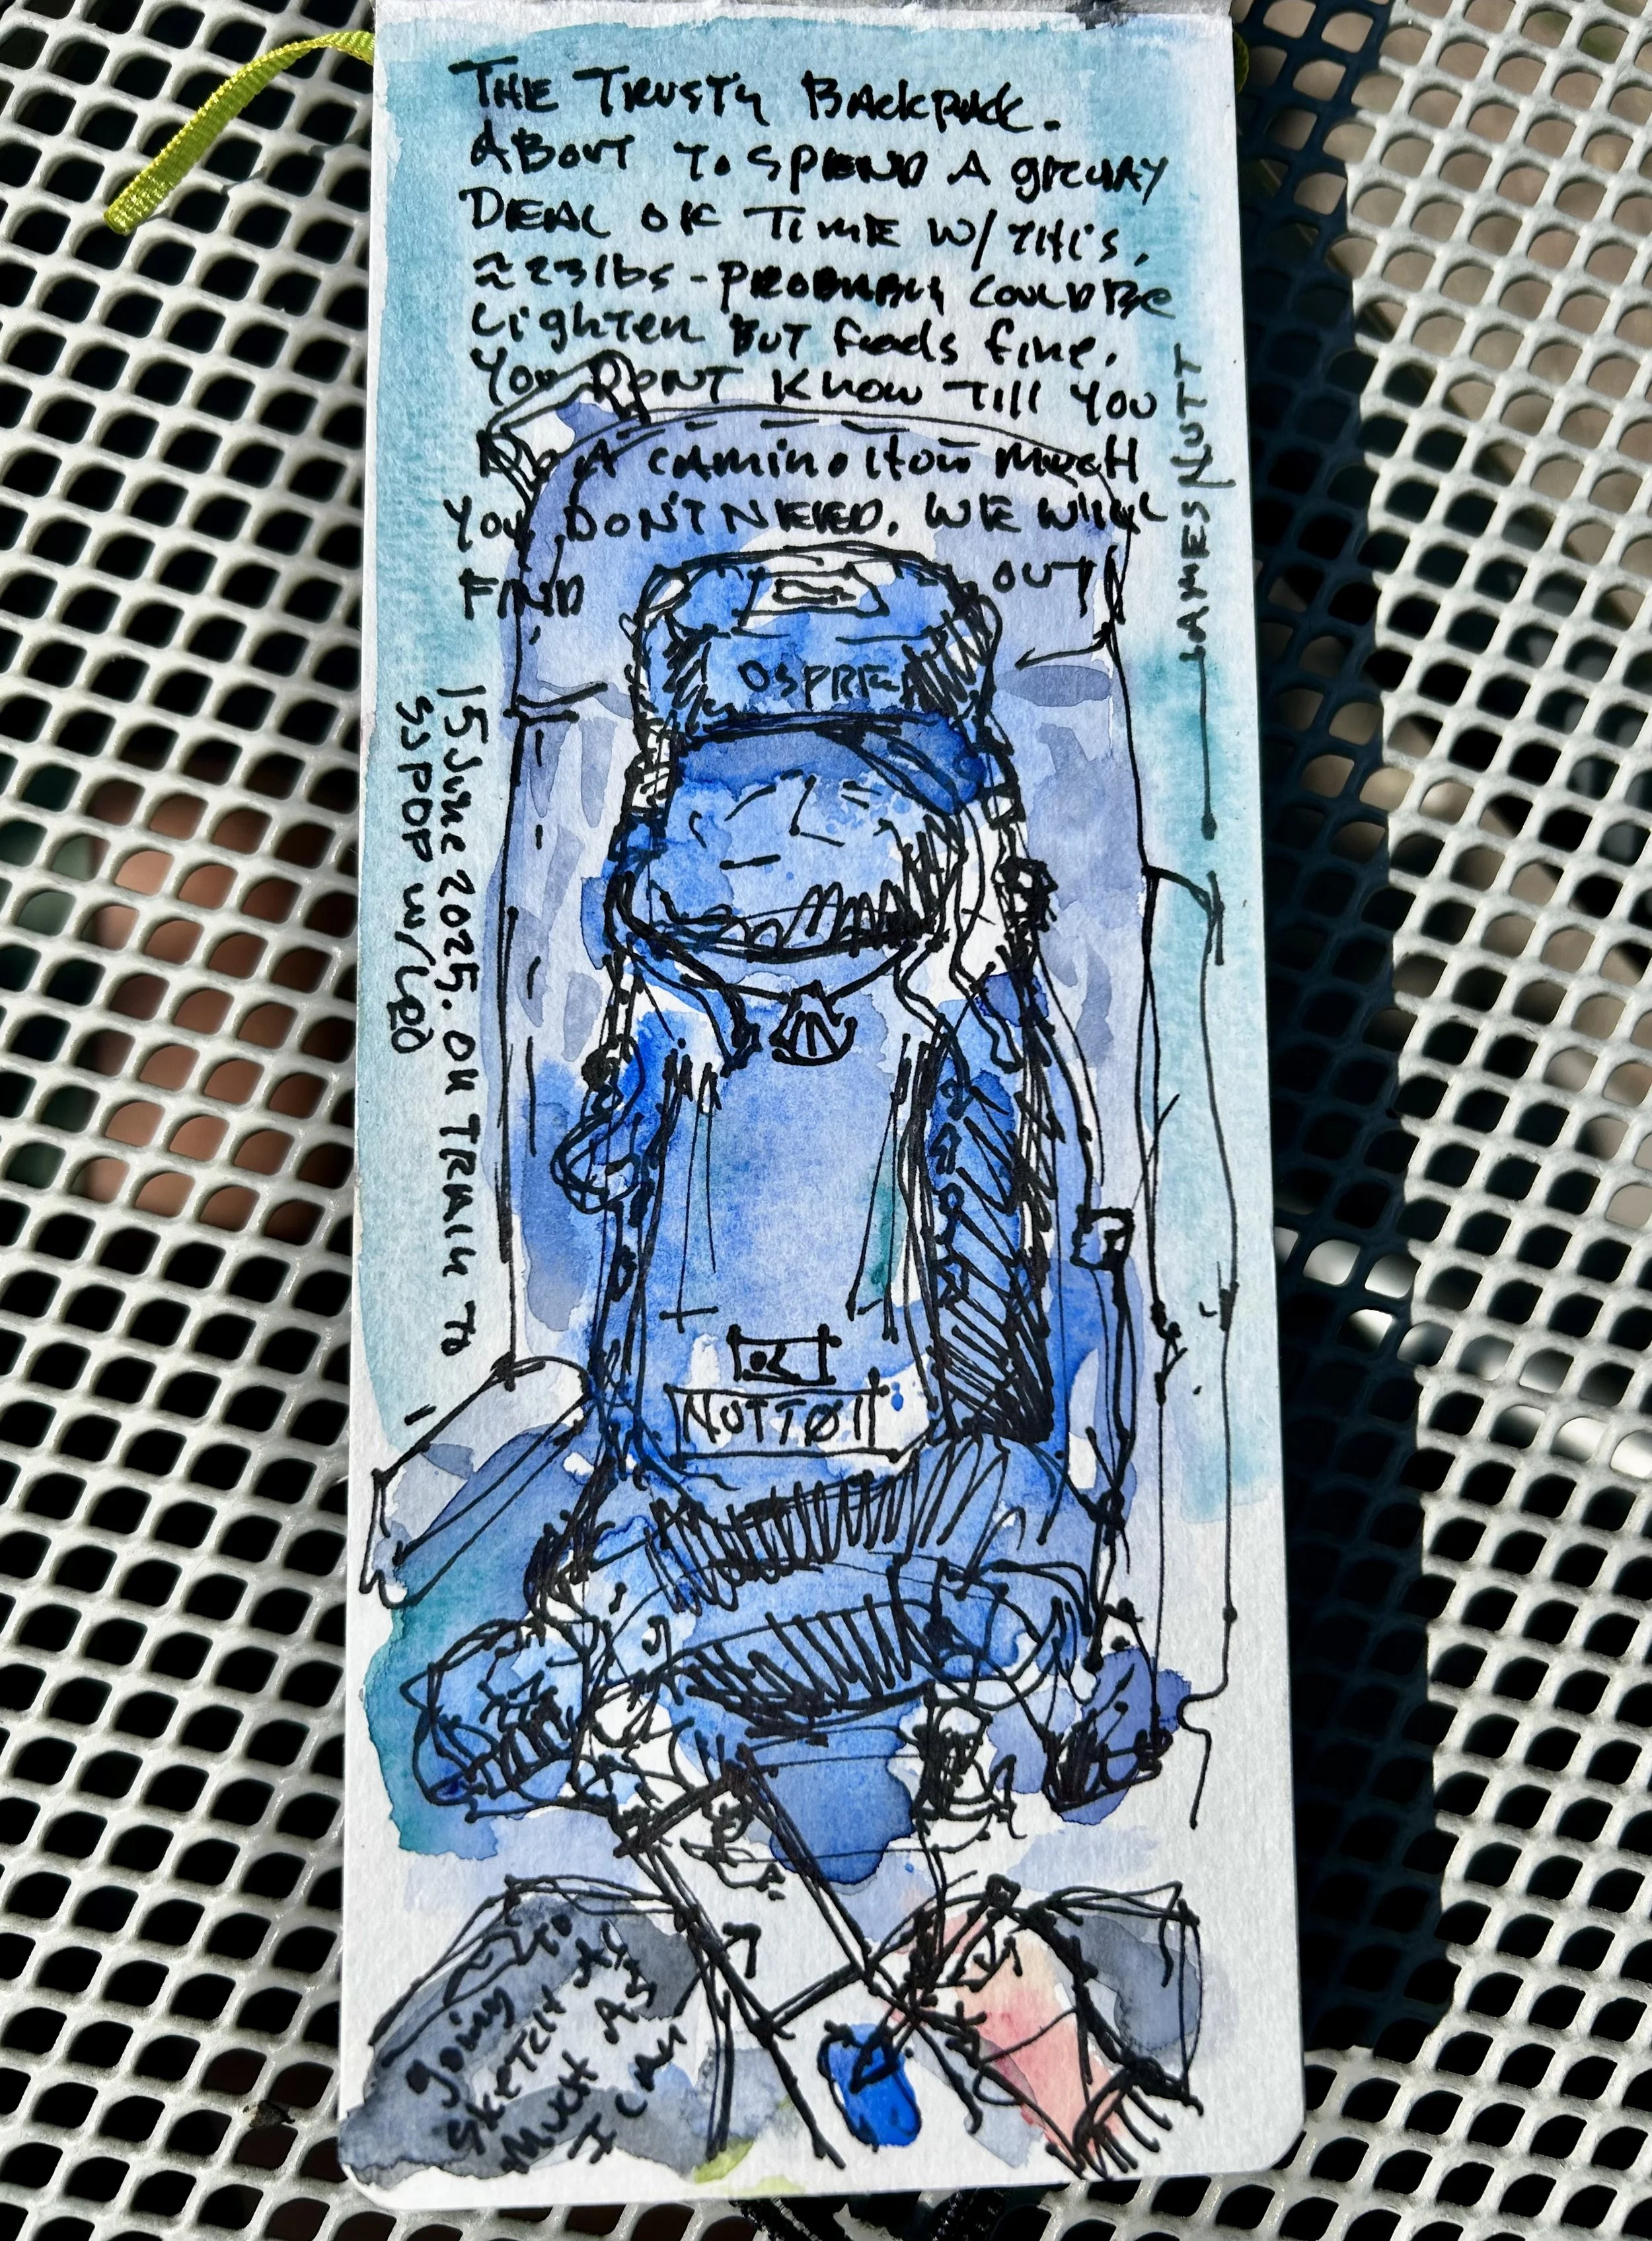 THE TRUSTY BACKPACK.
ABOUT TO SPEND A GREAT
DEAL OF TIME W/ THIS.
≈23lbs - PROBABLY COULD BE
LIGHTER BUT feels fine.
YOU DON'T KNOW TILL YOU
A CAMINO HOW MUCH
YOU DON'T NEED. WE WILL
FIND OUT
JAMES NUTT
OSPREY
15 June 2025. ON TRAIN TO
SS POP W/ LEO
NUTTØ11
going to
SKETCH AS
MUCH AS
I CAN